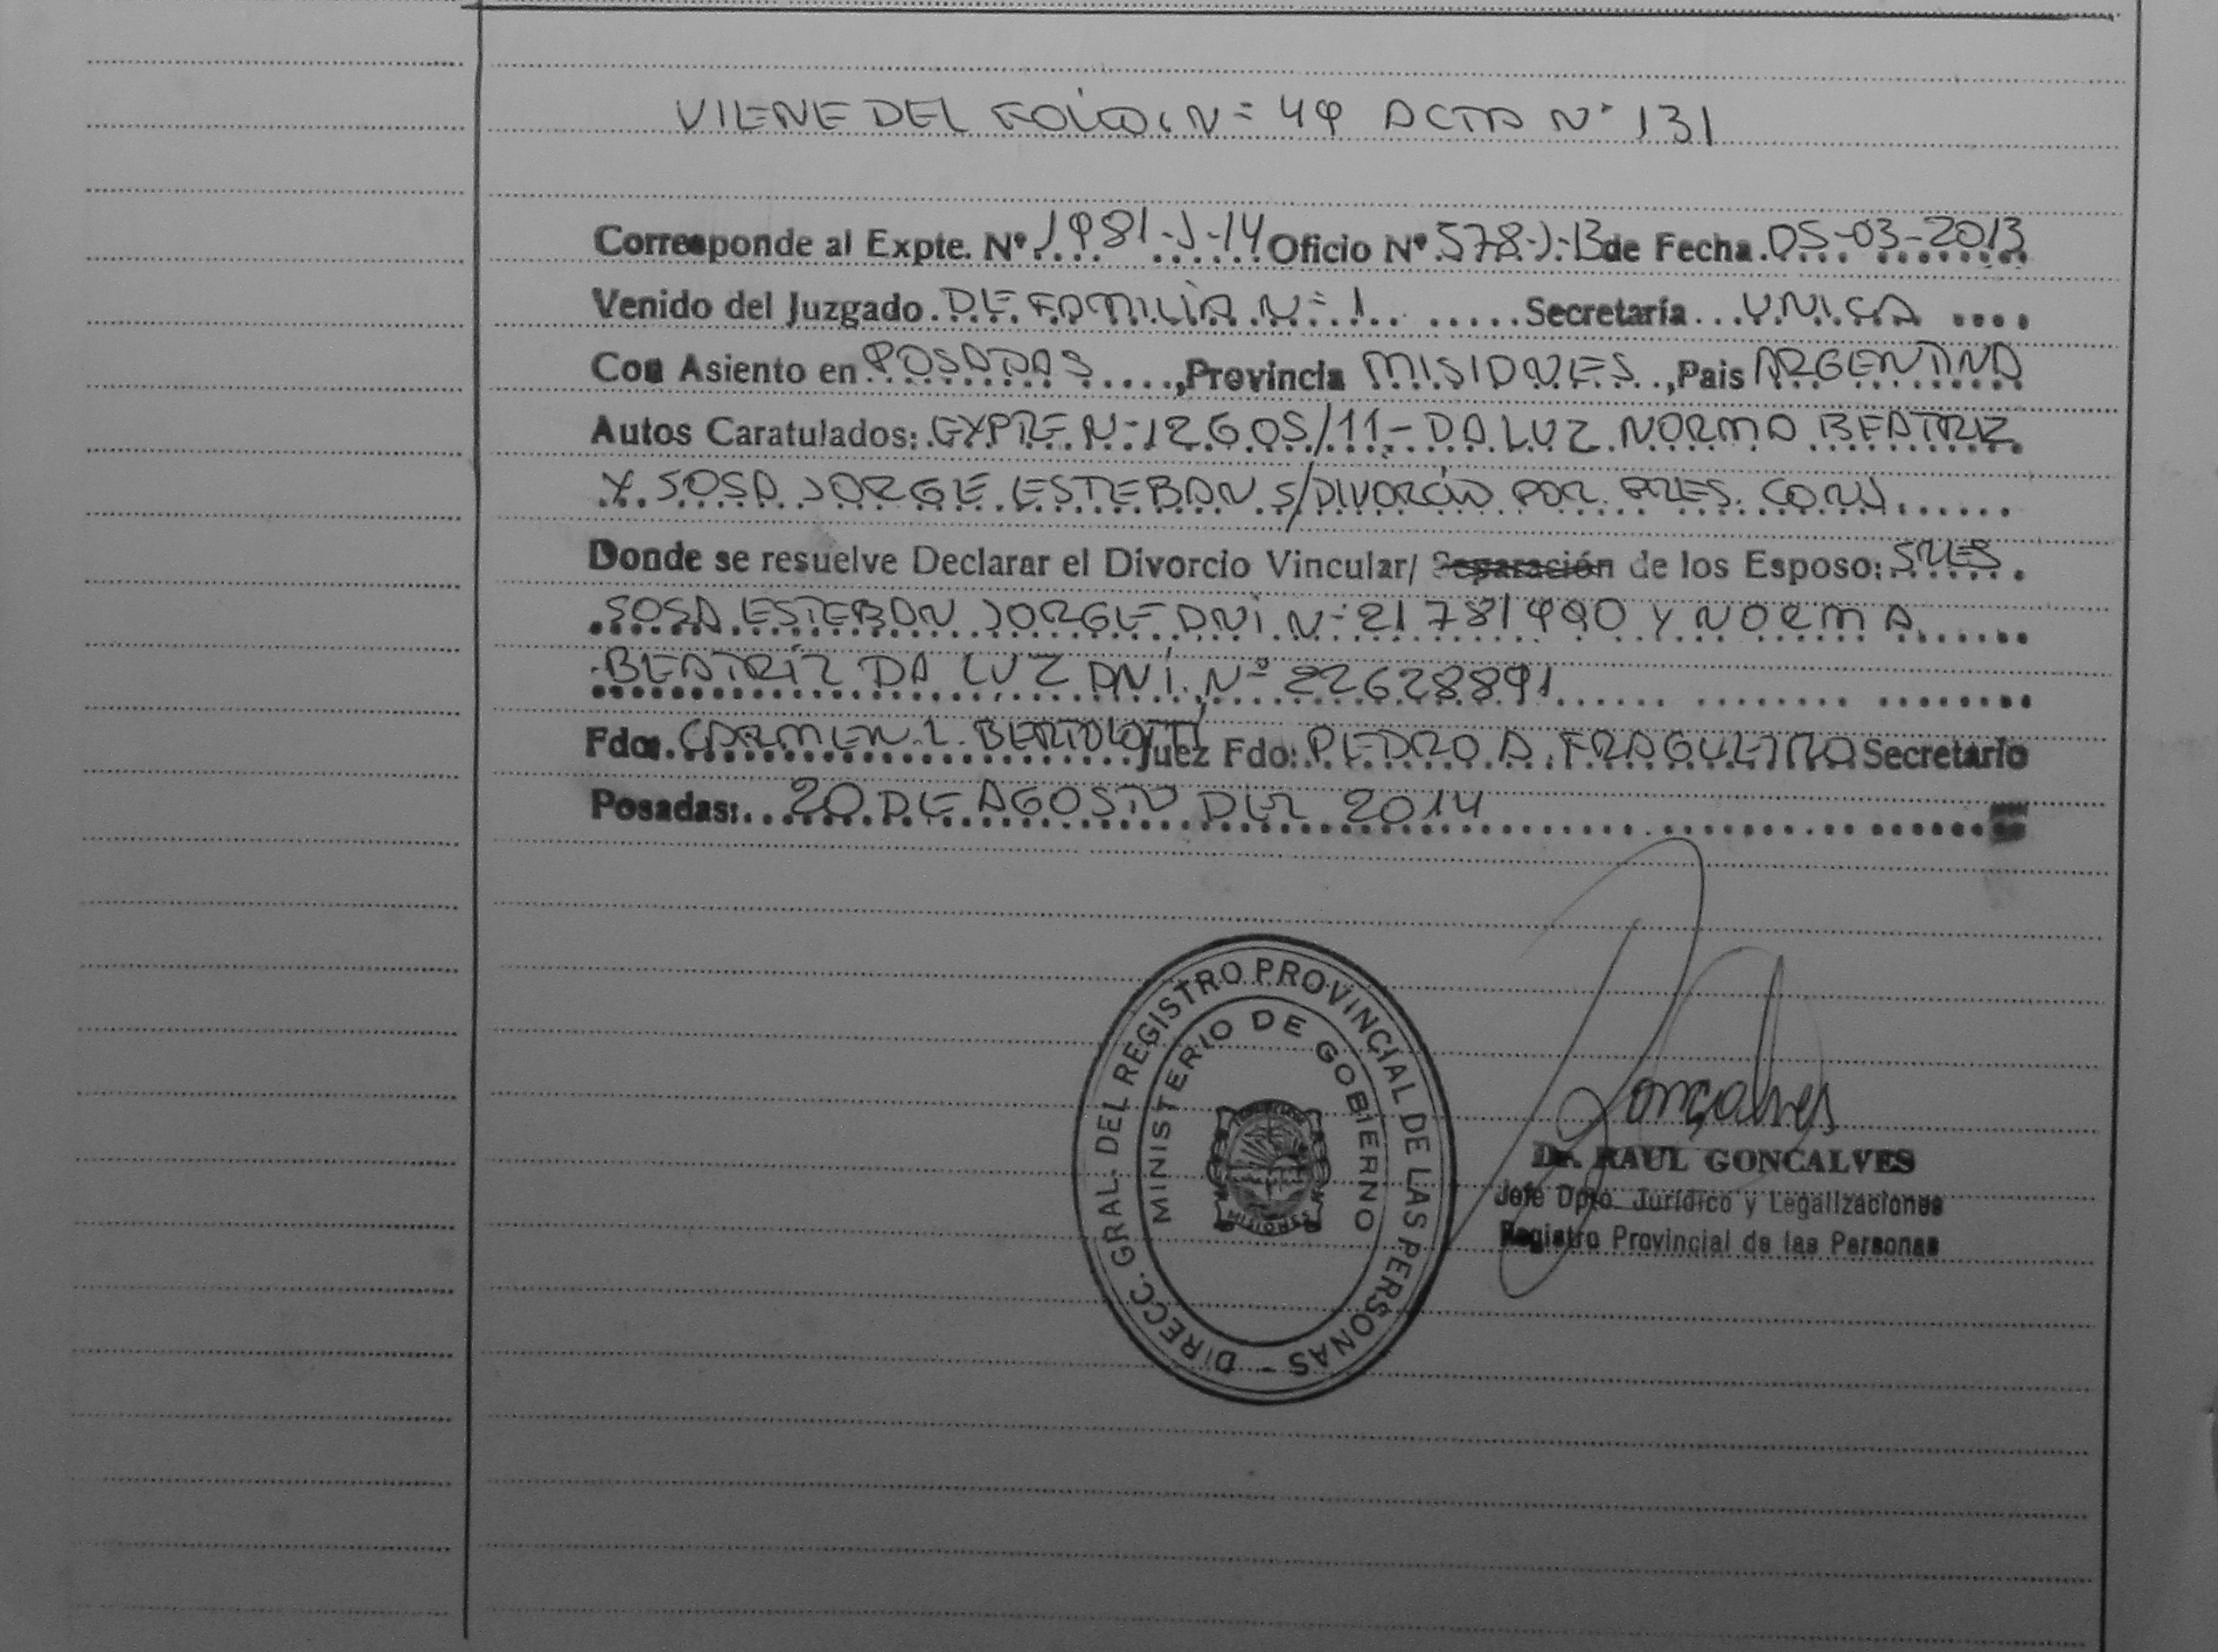 VIENE DEL FOLIO N= 49 ACTA N° 131
Corresponde al Expte. Nº 1981-J-14 Oficio Nº 578-J-13 de Fecha 05-03-2013
Venido del Juzgado DE FAMILIA N=1 Secretaría UNICA
Con Asiento en POSADAS, Provincia MISIONES, Pais ARGENTINA
Autos Caratulados: EXPTE N=12605/11- DA LUZ NORMA BEATRIZ
Y SOSA JORGE ESTEBAN S/DIVORCIO POR PRES. CONJ.
Donde se resuelve Declarar el Divorcio Vincular/ Separación de los Esposo: SRES
SOSA ESTEBAN JORGE DNI N=21781990 Y NORMA
BEATRÍZ DA LUZ DNI. Nº 22628891
Fdo: CARMEN L. BERTOLOTTI Juez Fdo: PEDRO A. Secretario
Posadas: 20 DE AGOSTO DEL 2014
DIRECC. GRAL. DEL REGISTRO PROVINCIAL DE LAS PERSONAS -
MINISTERIO DE GOBIERNO
MISIONES
Goncalves
Dr. RAUL GONCALVES
Jefe Dpto. Jurídico y Legalizaciones
Registro Provincial de las Personas